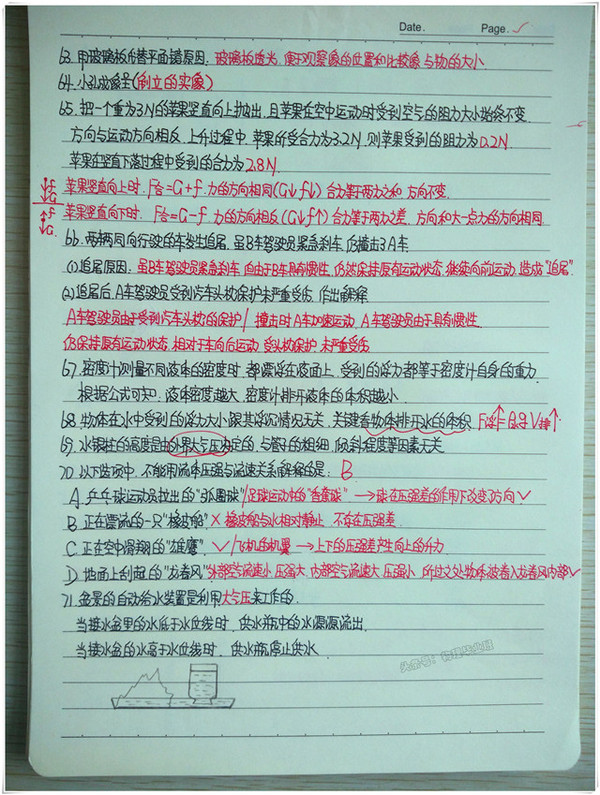 Date.
Page. ✓
63. 用玻璃板代替平面镜原因. 玻璃板透光, 便于观察像的位置和比较像与物的大小.
64. 小孔成像呈(倒立的实象)
65. 把一个重为3N的苹果竖直向上抛出, 且苹果在空中运动时受到空气的阻力大小始终不变.
方向与运动方向相反, 上升过程中, 苹果所受合力为3.2N, 则苹果受到的阻力为0.2N
苹果在竖直下落过程中受到的合力为2.8N
苹果竖直向上时. F合=G+f. 力的方向相同(G↓f↓) 合力等于两力之和. 方向不变.
苹果竖直向下时. F合=G-f. 力的方向相反(G↓f↑) 合力等于两力之差. 方向和大一点力的方向相同
↓f
↓G
↑f
↓G
66. 两辆同向行驶的车发生追尾, 虽B车驾驶员紧急刹车, 仍撞击了A车
(1)追尾原因: 虽B车驾驶员紧急刹车, 但由于B车具有惯性, 仍然保持原有运动状态, 继续向前运动, 造成"追尾"
(2)追尾后, A车驾驶员受到汽车头枕保护未严重受伤. 作出解释
A车驾驶员由于受到汽车头枕的保护/撞击时A车加速运动, A车驾驶员由于具有惯性,
仍保持原有运动状态, 相对于车向后运动, 受头枕保护, 未严重受伤
67. 密度计测量不同液体的密度时, 都漂浮在液面上, 受到的浮力都等于密度计自身的重力.
根据公式可知: 液体密度越大, 密度计排开液体的体积越小.
68. 物体在水中受到的浮力大小跟其浮沉情况无关, 关键看物体排开水的体积. F浮↑=ρ液gV排↑
69. 水银柱的高度是由外界大气压决定的, 与管子的粗细, 倾斜程度等因素无关
70. 以下选项中, 不能用流体压强与流速关系解释的是: B
A. 乒乓球运动员拉出的"弧圈球"/足球运动中的"香蕉球" → 球在压强差的作用下改变了方向 ✓
B. 正在漂流的一只"橡皮船" × 橡皮船与水相对静止, 不存在压强差.
C. 正在空中滑翔的"雄鹰" ✓/飞机的机翼 → 上下的压强差产生向上的升力
D. 地面上刮起的"龙卷风" 外部空气流速小, 压强大, 内部空气流速大, 压强小, 所过之处物体被卷入龙卷风内部 ✓
71. 盆景的自动给水装置是利用大气压来工作的.
当接水盆里的水低于水位线时, 供水瓶中的水源源流出.
当接水盆的水高于水位线时, 供水瓶停止供水
头条号: